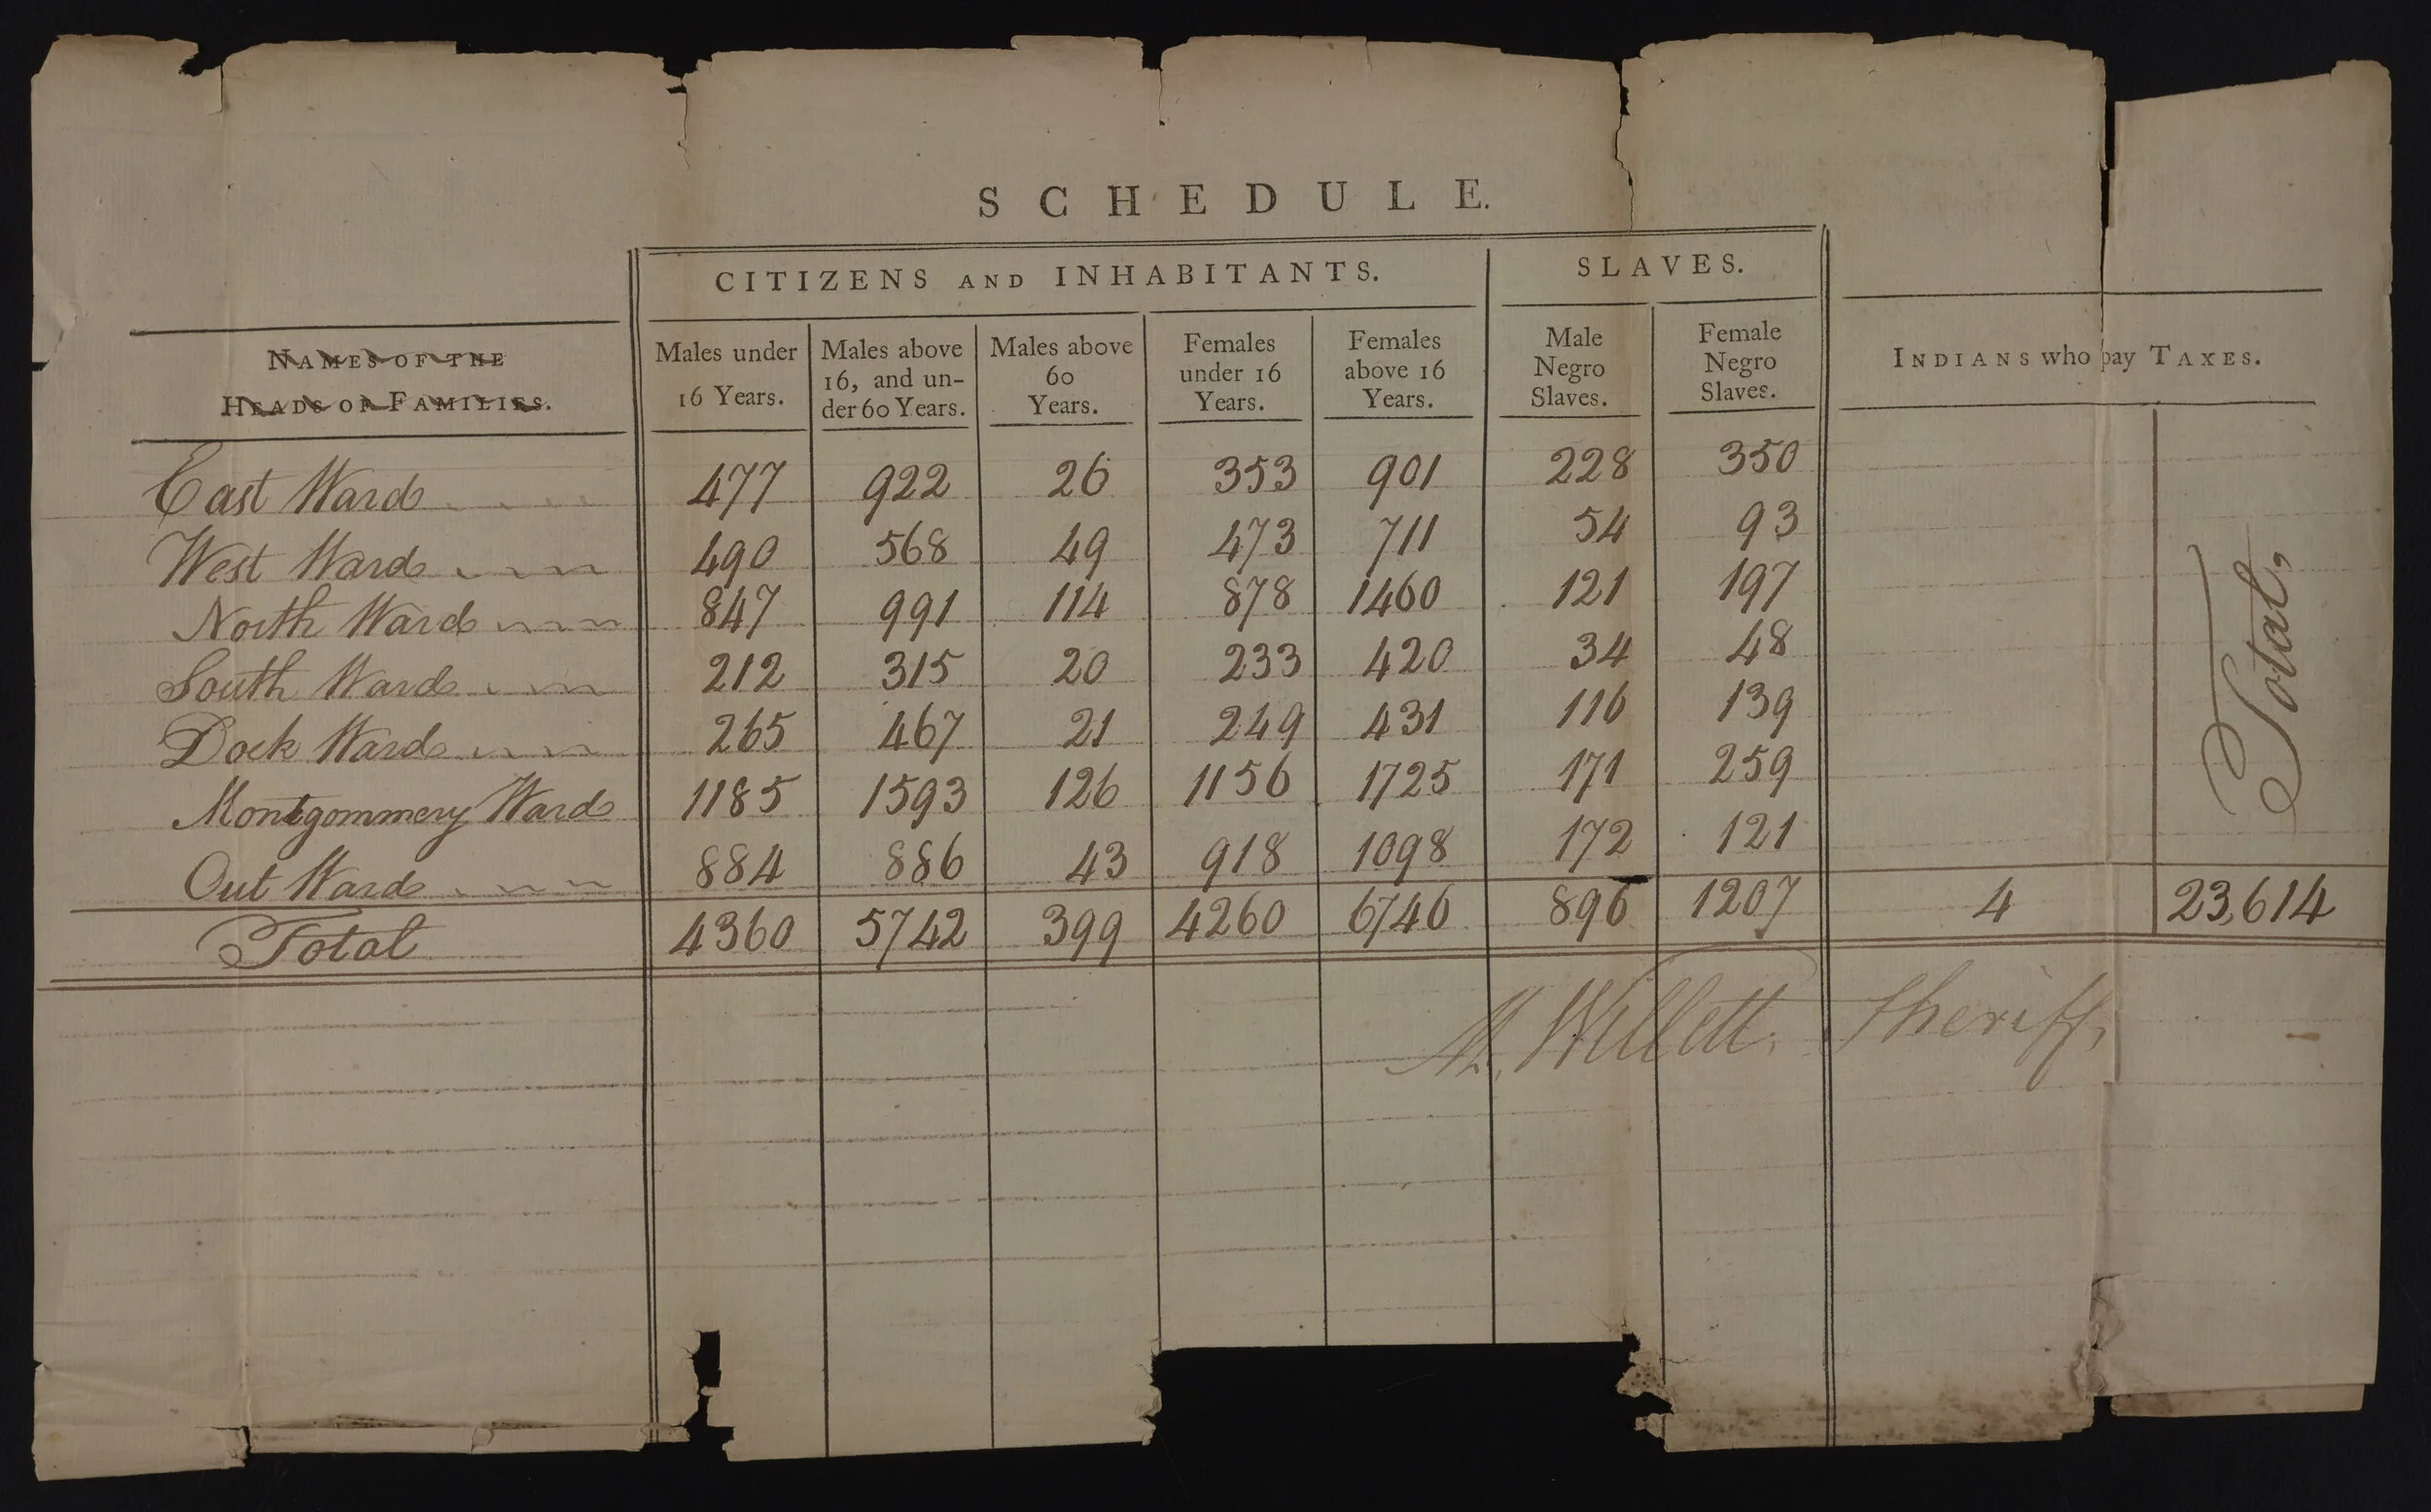 SCHEDULE.
CITIZENS AND INHABITANTS. SLAVES.
NAMES OF THE HEADS OF FAMILIES. Males under 16 Years. Males above 16, and un-der 60 Years. Males above 60 Years. Females under 16 Years. Females above 16 Years. Male Negro Slaves. Female Negro Slaves. INDIANS who pay TAXES.
Total,
East Ward 477 922 26 353 901 228 350
West Ward 490 568 49 473 711 54 93
North Ward 847 991 114 878 1460 121 197
South Ward 212 315 20 233 420 34 48
Dock Ward 265 467 21 249 431 116 139
Montgommery Ward 1185 1593 126 1156 1725 171 259
Out Ward 884 886 43 918 1098 172 121
Total 4360 5742 399 4260 6746 896 1207 4 23,614
M. Willett. Sheriff,